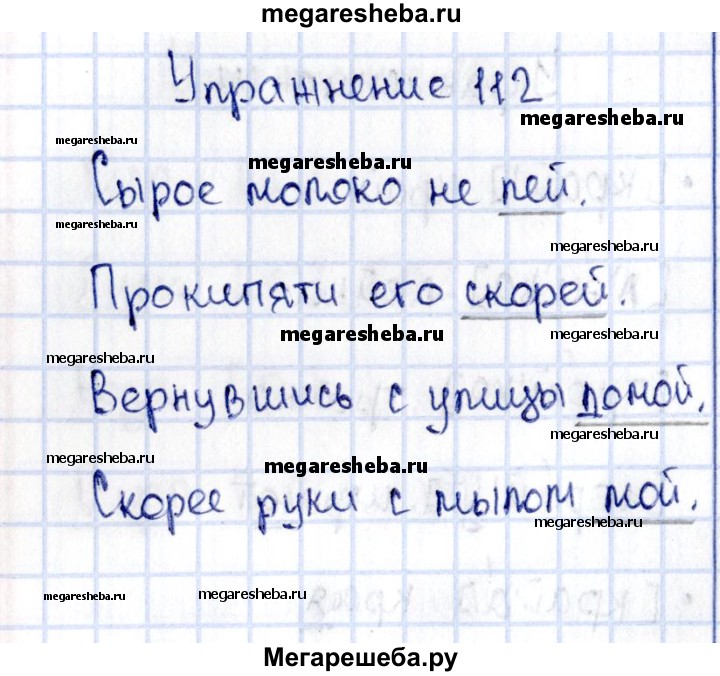 megaresheba.ru
Упражнение 112
megaresheba.ru
megaresheba.ru
megaresheba.ru
Сырое молоко не пей.
megaresheba.ru
megaresheba.ru
Прокипяти его скорей.
megaresheba.ru
megaresheba.ru
Вернувшись с улицы домой,
megaresheba.ru
megaresheba.ru
megaresheba.ru
Скорее руки с мылом мой.
megaresheba.ru
megaresheba.ru
megaresheba.ru
Мегарешеба.ру